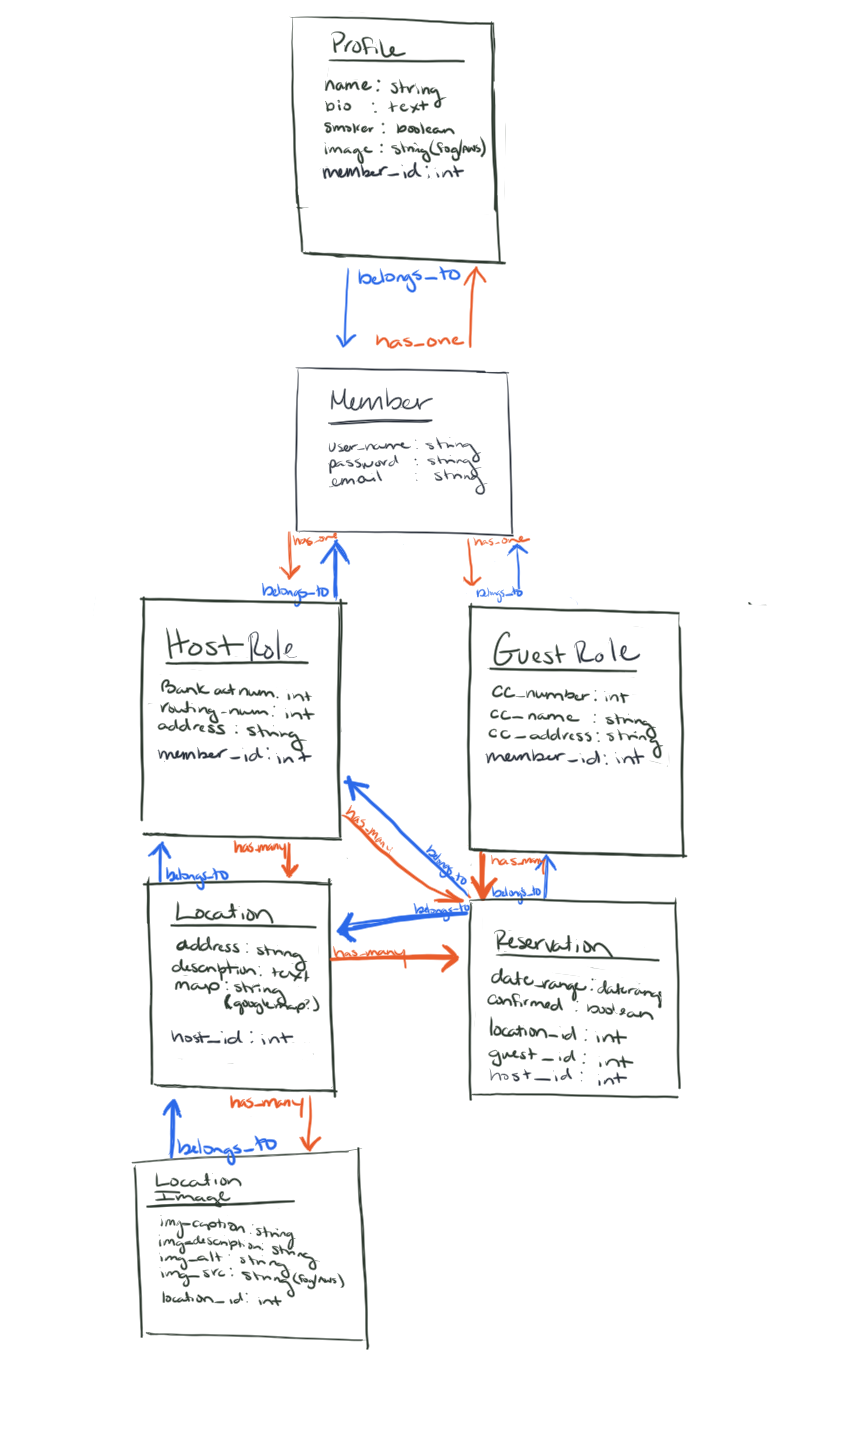 Profile
name: string
bio : text
smoker: boolean
image: string(fog/aws)
member_id: int
belongs_to
has_one
Member
user_name: string
password : string
email : string
has_one
has_one
belongs_to
belongs_to
Host Role
Bank act num: int
routing_num: int
address: string
member_id: int
Guest Role
cc_number: int
cc_name : string
cc_address: string
member_id: int
has_many
belongs_to
has_many
belongs_to
has_many
belongs_to
belongs_to
has_many
Location
address: string
description: text
map: string
(googlemap?)
host_id: int
Reservation
date_range: daterange
confirmed : boolean
location_id: int
guest_id: int
host_id : int
has_many
belongs_to
Location
Image
img-caption: string
img-description: string
img_alt: string
img_src: string(fog/aws)
location_id: int